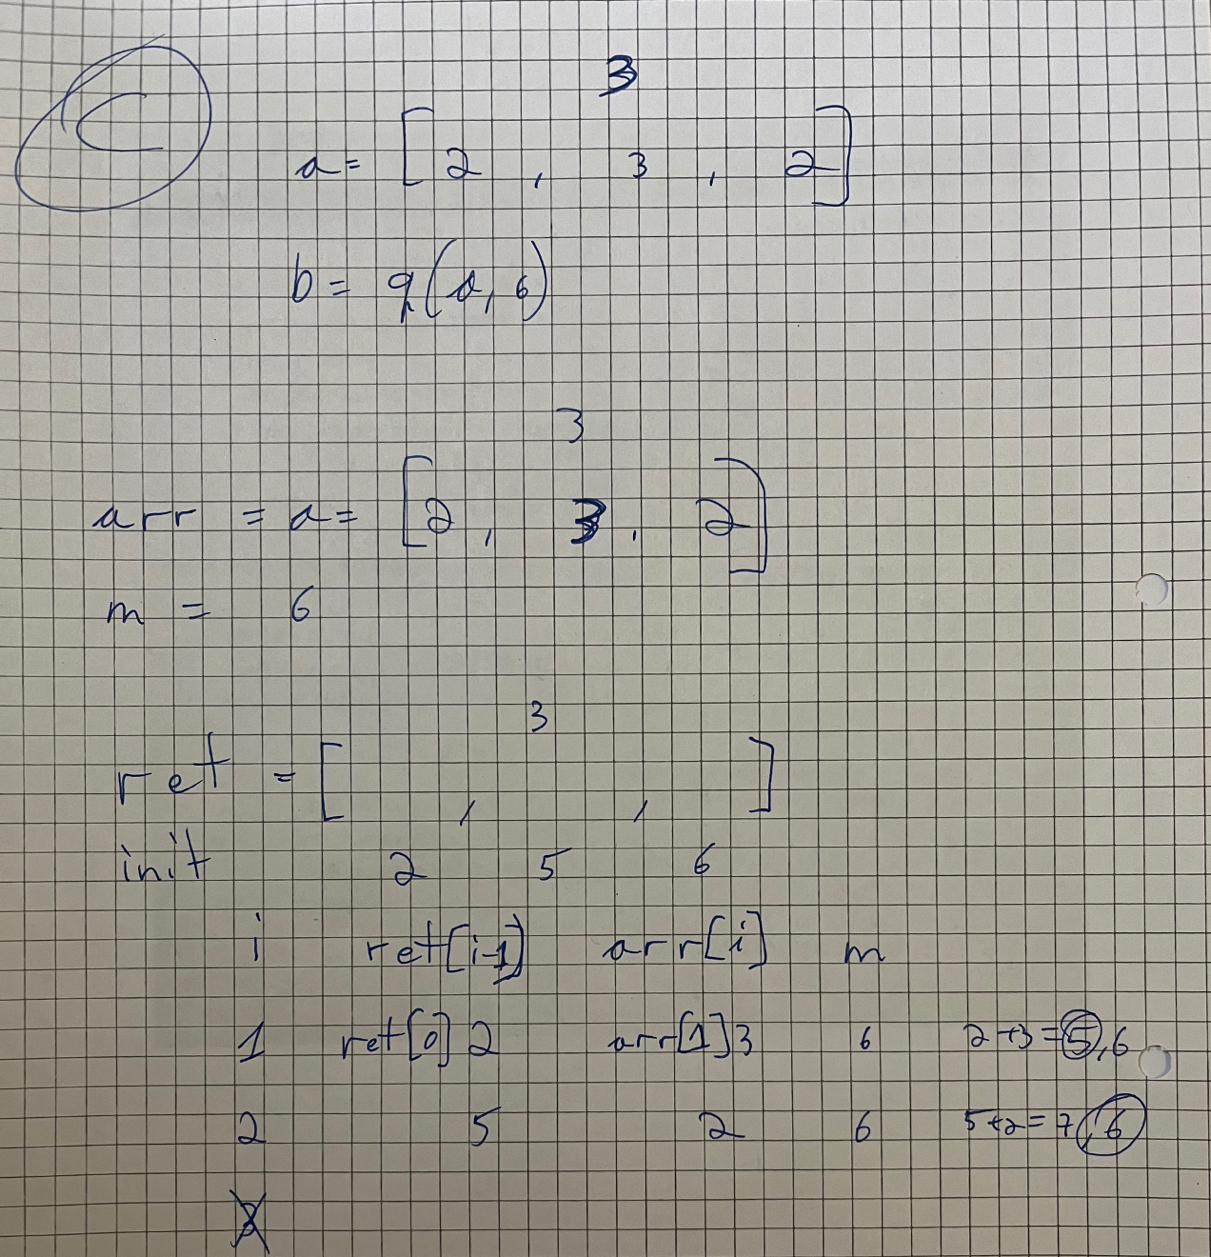 C
3
a = [ 2 , 3 , 2 ]
b = q(a, 6)
3
arr = a = [ 2 , 3 , 2 ]
m = 6
3
ret = [ , , ]
init 2 5 6
i ret[i-1] arr[i] m
1 ret[0] 2 arr[1] 3 6 2+3=5,6
2 5 2 6 5+2=7,6
3